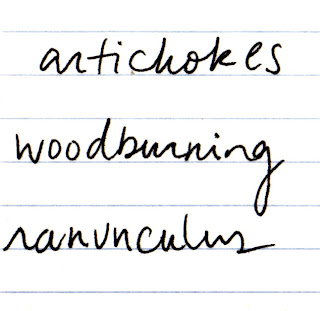 artichokes
woodburning
ranunculus